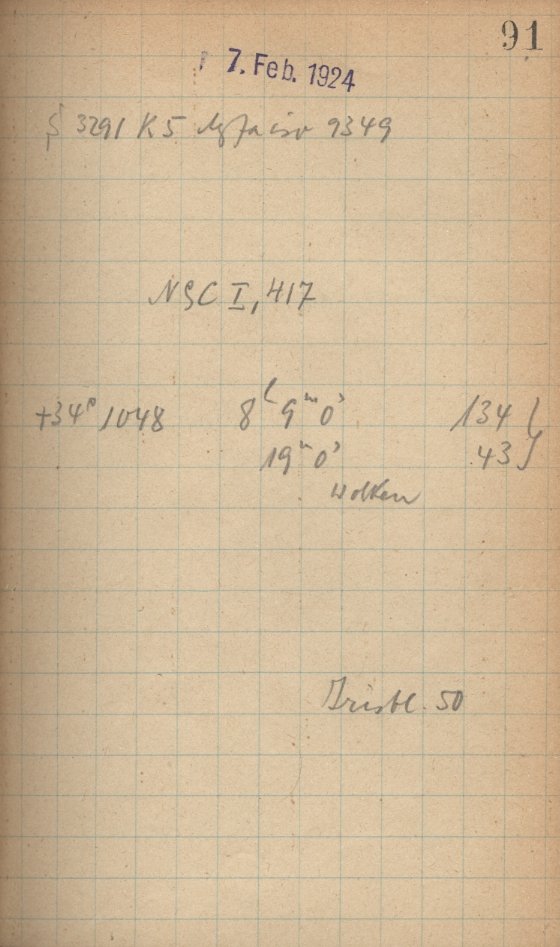 91
7. Feb. 1924
3291 K5 9349
NGC I, 417
+34° 1048 8ʰ 9ᵐ 0ˢ 134
19ᵐ 0ˢ 43
Wolken
Irisbl. 50